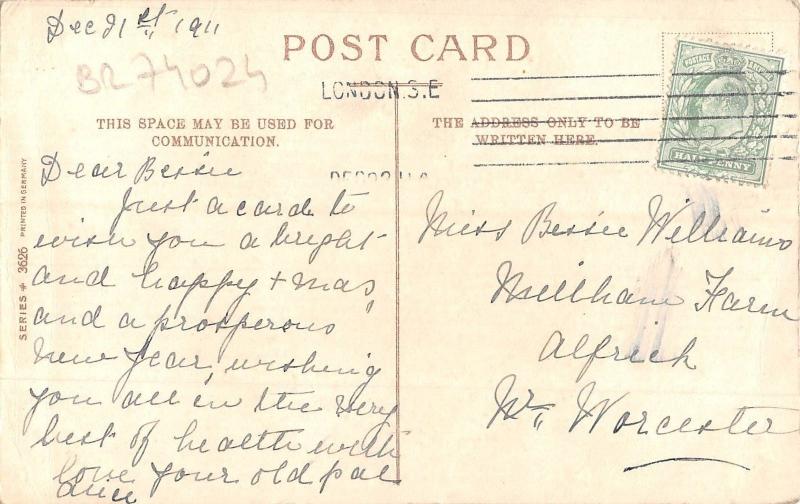 Dec 21st 1911
POST CARD
BR74024
LONDON.S.E
THIS SPACE MAY BE USED FOR
COMMUNICATION.
THE ADDRESS ONLY TO BE
WRITTEN HERE.
HALFPENNY
SERIES # 3626 PRINTED IN GERMANY
Dear Bessie
Just a card to
wish you a bright
and happy +mas,
and a prosperous
New Year, wishing
you all in the very
best of health with
love your old pal
Miss Bessie Williams
Millham Farm
Alfrick
Nr Worcester